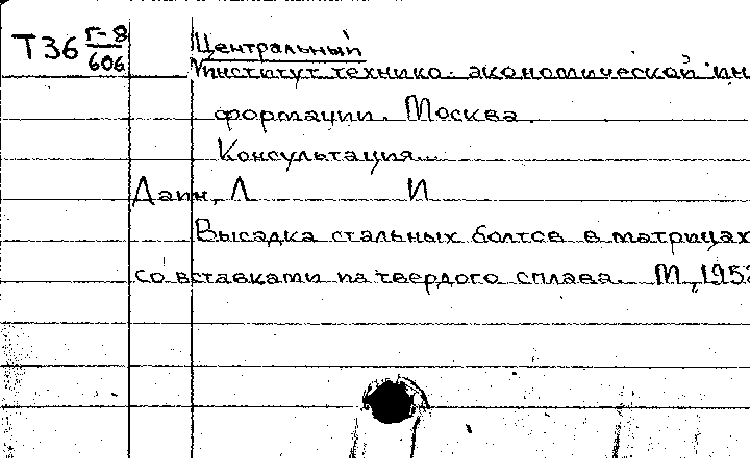 Т36 Г-8
606
Центральный
институт технико-экономической ин
формации. Москва.
Консультация...
Даин, Л И
Высадка стальных болтов в матрицах
со вставками из твердого сплава. М, 195